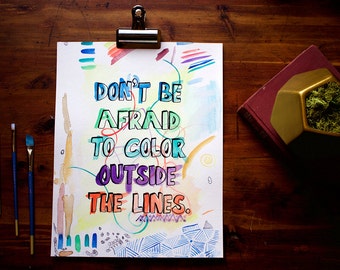 DON'T BE
AFRAID
TO COLOR
OUTSIDE
THE LINES.